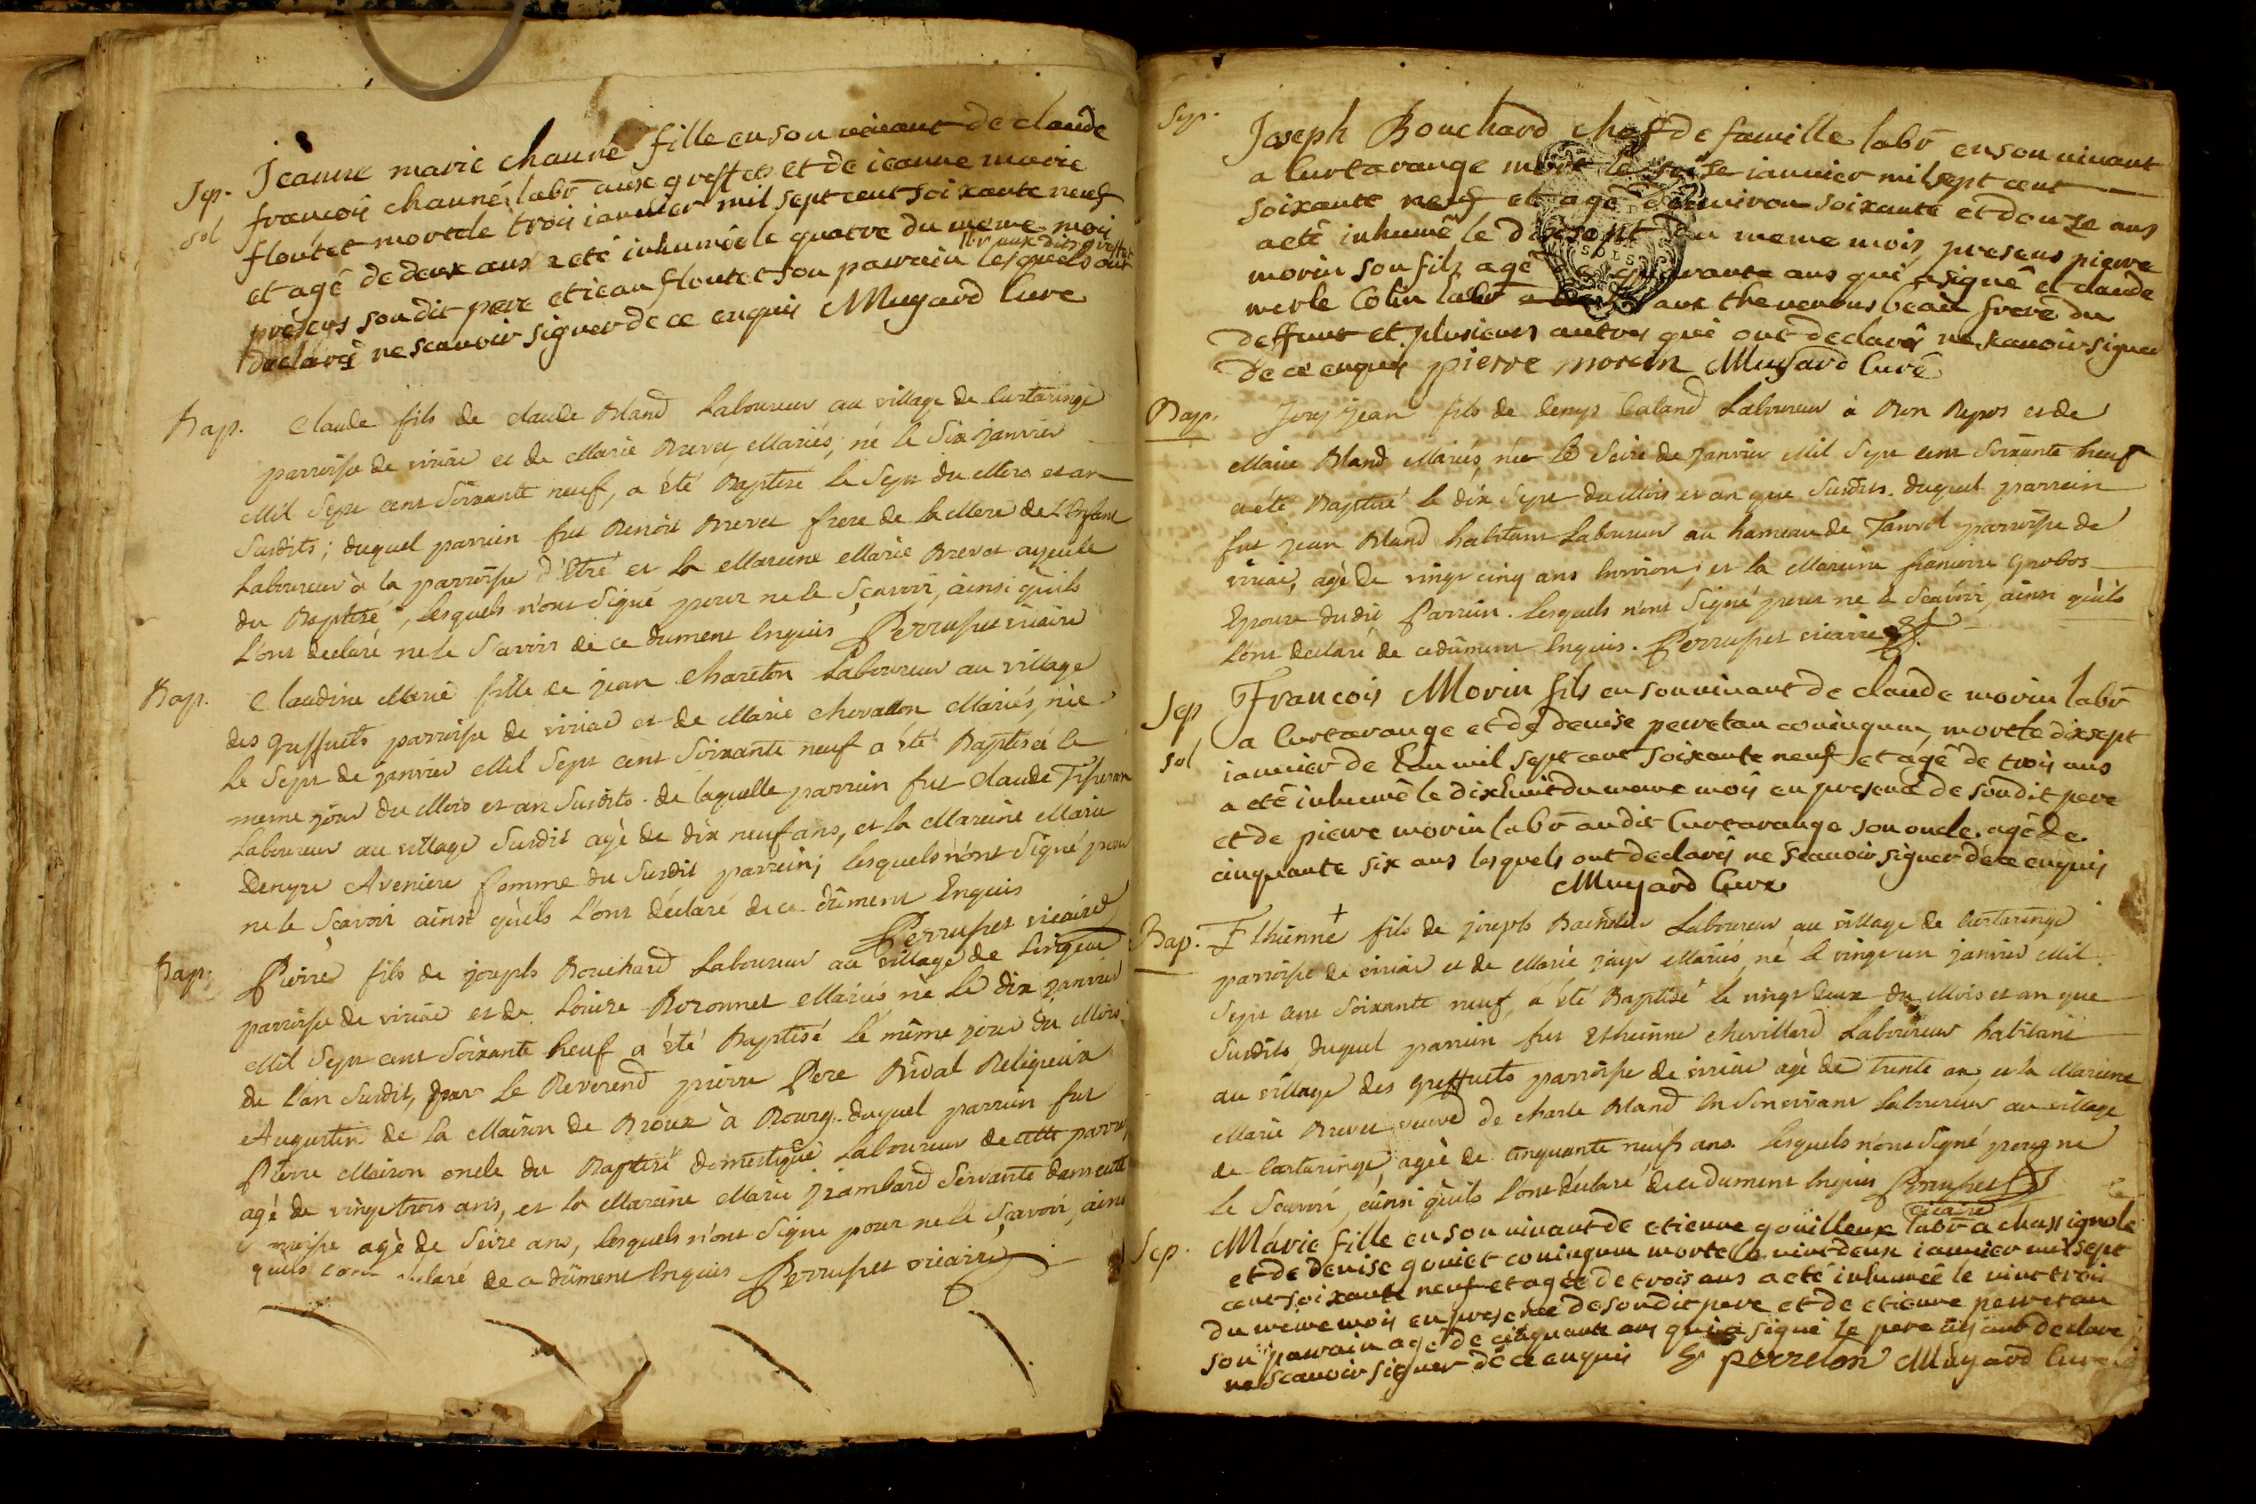 Sep. Jeanne marie chauné fille en son vivant de claude
sol françois chauné labr aux greffets et de ieanne marie
floutet morte le trois ianvier mil sept cent soixante neuf
et agé de deux ans a eté inhumée le quatre du meme mois
présens son dit pere et iean floutet son parrain labr aux dits greffets lesquels ont
declarés ne scavoir signer de ce enquis Muyard Curé
Bap. Claude fils de claude Bland Laboureur au village de Curtaringe
parroisse de viriac et de Marie Brevet Mariés, né le Six janvier
Mil Sept cent Soixante neuf, a été Baptisé le Sept du Mois et an
Susdits; duquel parrein fut Benoit Brevet frere de la Mere de L'Enfant
Laboureur à la parroisse d'Etré et la Mareine Marie Brevet ayeule
du Baptisé, lesquels n'ont Signé pour ne le Sçavoir, ainsi qu'ils
L'ont declaré ne le Savoir de ce dument Enquis Perruset vicaire
Bap. Claudine Marie fille de jean Chareton Laboureur au village
des Greffuets parroisse de viriac et de Marie chevallon Mariés, née
Le Sept de janvier Mil Sept cent Soixante neuf a été Baptisée le
meme jour du Mois et an Susdits. de laquelle parrein fut Claude
Laboureur au village Susdit agé de dix neuf ans, et la Mareine Marie
Denyse Aveniere femme du Susdit parrein; lesquels n'ont Signé pour
ne le Scavoir ainsi qu'ils L'ont déclaré de ce dûment Enquis
Perruset vicaire
Bap. Pierre fils de joseph Bouchard Laboureur au village de
parroisse de viriac et de Louise Boronnet Mariés né Le dix janvier
Mil Sept cent Soixante neuf a été Baptisé le même jour du Mois
de l'an Susdit, par Le Reverend pierre Pere Bidal Religieux
Augustin de la Maison de Broux à Bourg. duquel parrein fut
Pierre Mairon oncle du Baptisé domestique Laboureur de cette parroi
agé de vingt trois ans, et la Maraine Marie jambard Servante dans cette
parroisse agée de Seize ans, lesquels n'ont Signé pour ne le Sçavoir, ainsi
qu'ils l'ont declaré de ce dûment Enquis Perruset vicaire
Sep. Joseph Bouchard chef de famille labr en son vivant
a Curtarange mort le seize ianvier mil sept cent
soixante neuf et agé d'environ soixante et douze ans
a eté inhumé le dix sept du meme mois, presens pierre
morin son fils agé de quarante ans qui a signé et claude
merle Colin labr aux thevenons beau frere du
deffunt et plusieurs autres qui ont declaré ne scavoir signer
de ce enquis pierre morin Muyard Curé
Bap. Jean fils de denys Caland Laboureur à Bon Repos et de
Marie Bland Mariés, né le Seize de Janvier Mil Sept cent Soixante neuf
a été Baptisé le dix Sept du Mois et an que Susdits. duquel parrein
fut jean Bland habitant Laboureur au hameau de Tanvol parroisse de
viriac, agé de vingt cinq ans Environ; et la Mareine francoise Grobos
Epouse du dit Parrein. lesquels n'ont Signé pour ne le Sçavoir, ainsi qu'ils
L'ont declaré de ce dûment Enquis. Perruset vicaire
Sep François Morin fils en son vivant de claude morin labr
a Curtarange et de denise perretan coniugum, mort le dix sept
sol ianvier de l'an mil sept cent soixante neuf et agé de trois ans
a eté inhumé le dix huit du meme mois en presence de son dit pere
et de pierre morin labr au dit Curtarange son oncle agé de
cinquante six ans lesquels ont declarés ne scavoir signer de ce enquis
Muyard Curé
Bap. Ethienne + fils de joseph Laboureur au village de Curtaringe
parroisse de viriac et de Marie jayr Mariés, né le vingt un janvier Mil
Sept cent Soixante neuf, a été Baptisé le vingt deux du Mois et an que
Susdits duquel parrein fut Ethienne Chevillard Laboureur habitant
au village des Greffuets parroisse de viriac agé de trente ans, et la Mareine
Marie Brevet veuve de charle Bland En Son vivant Laboureur au village
de Curtaringe agée de cinquante neuf ans. lesquels n'ont Signé pour ne
le Sçavoir, ainsi qu'ils L'ont declaré de ce dument Enquis Perruset
vicaire
Sep. Marie fille en son vivant de etienne goüilleux labr a chassignole
et de denise goviet coniugum morte le vint deux ianvier mil sept
cent soixante neuf et agée de trois ans a eté inhumée le vint trois
du meme mois en presence de son dit pere et de etienne perretan
son parrain agé de cinquante ans qui a signé le pere declaré
ne scavoir signer de ce enquis E perreton Muyard Curé